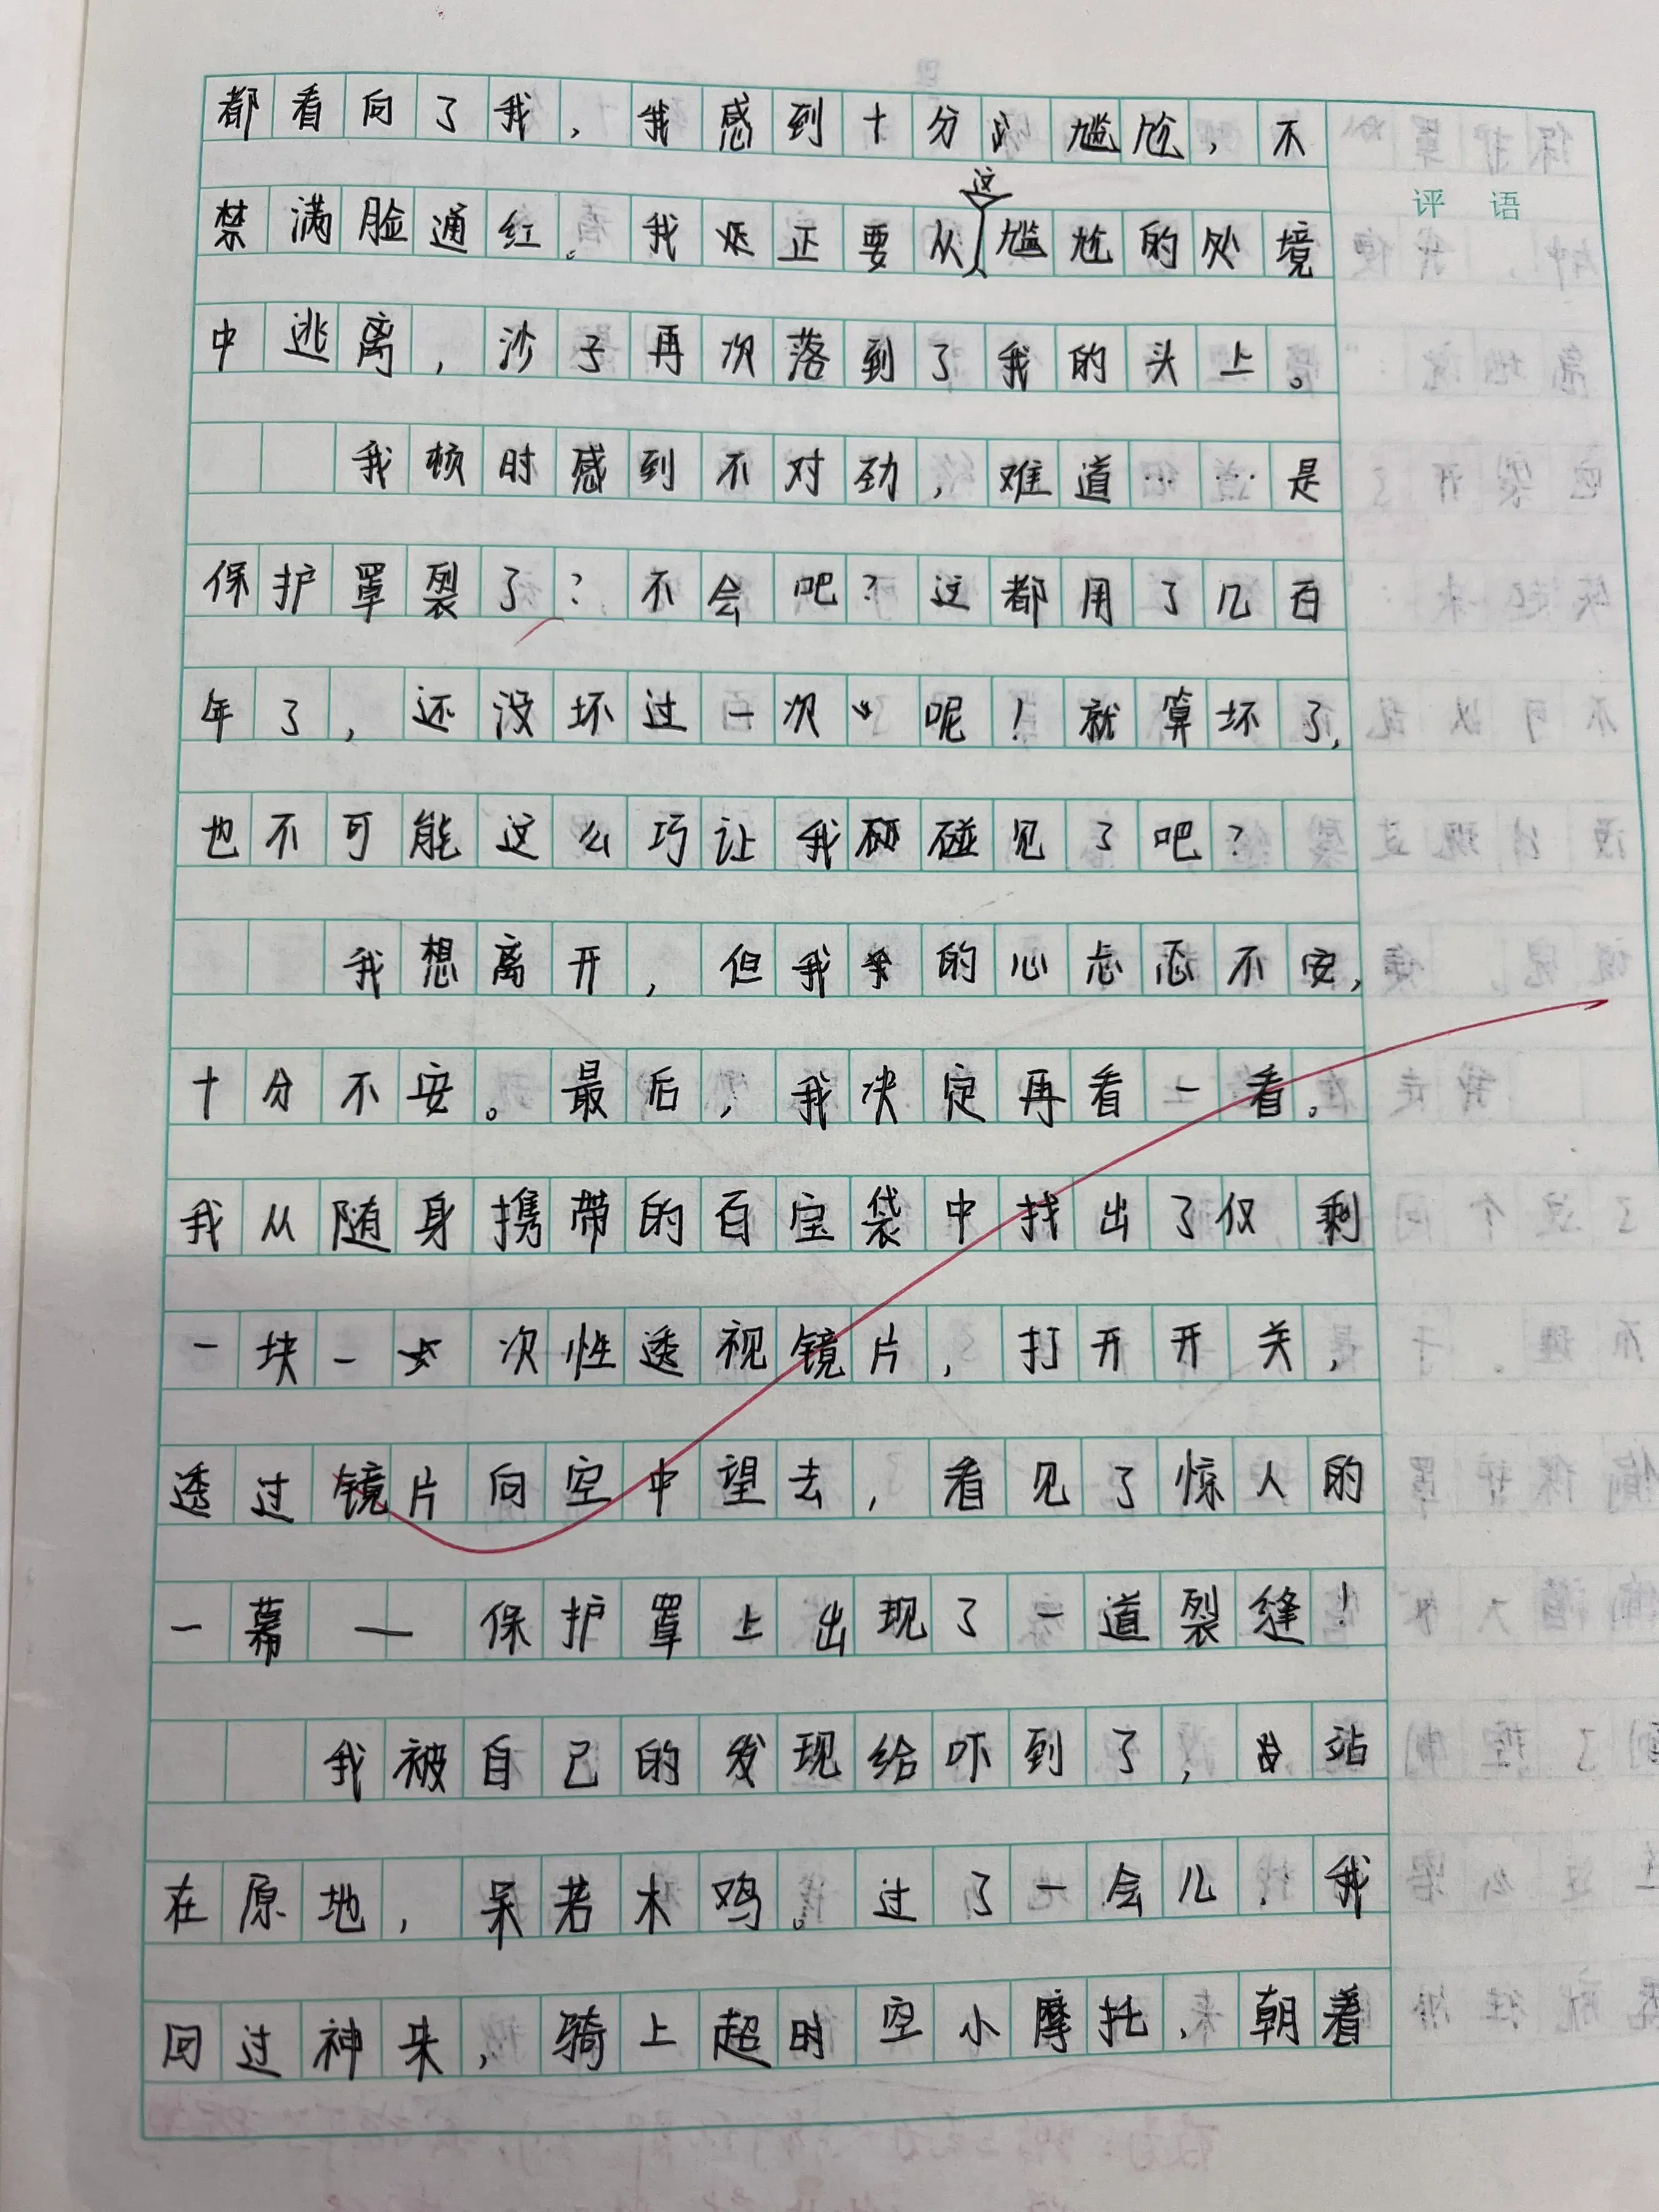 都看向了我，我感到十分尴尬，不
禁满脸通红。我正要从这尴尬的处境
中逃离，沙子再次落到了我的头上。
我顿时感到不对劲，难道……是
保护罩裂了？不会吧？这都用了几百
年了，还没坏过一次呢！就算坏了，
也不可能这么巧让我碰见了吧？
我想离开，但我的心忐忑不安，
十分不安。最后，我决定再看一看。
我从随身携带的百宝袋中找出了仅剩
一块一次性透视镜片，打开开关，
透过镜片向空中望去，看见了惊人的
一幕——保护罩上出现了一道裂缝！
我被自己的发现给吓到了，站
在原地，呆若木鸡。过了一会儿，我
回过神来，骑上超时空小摩托，朝着
评语